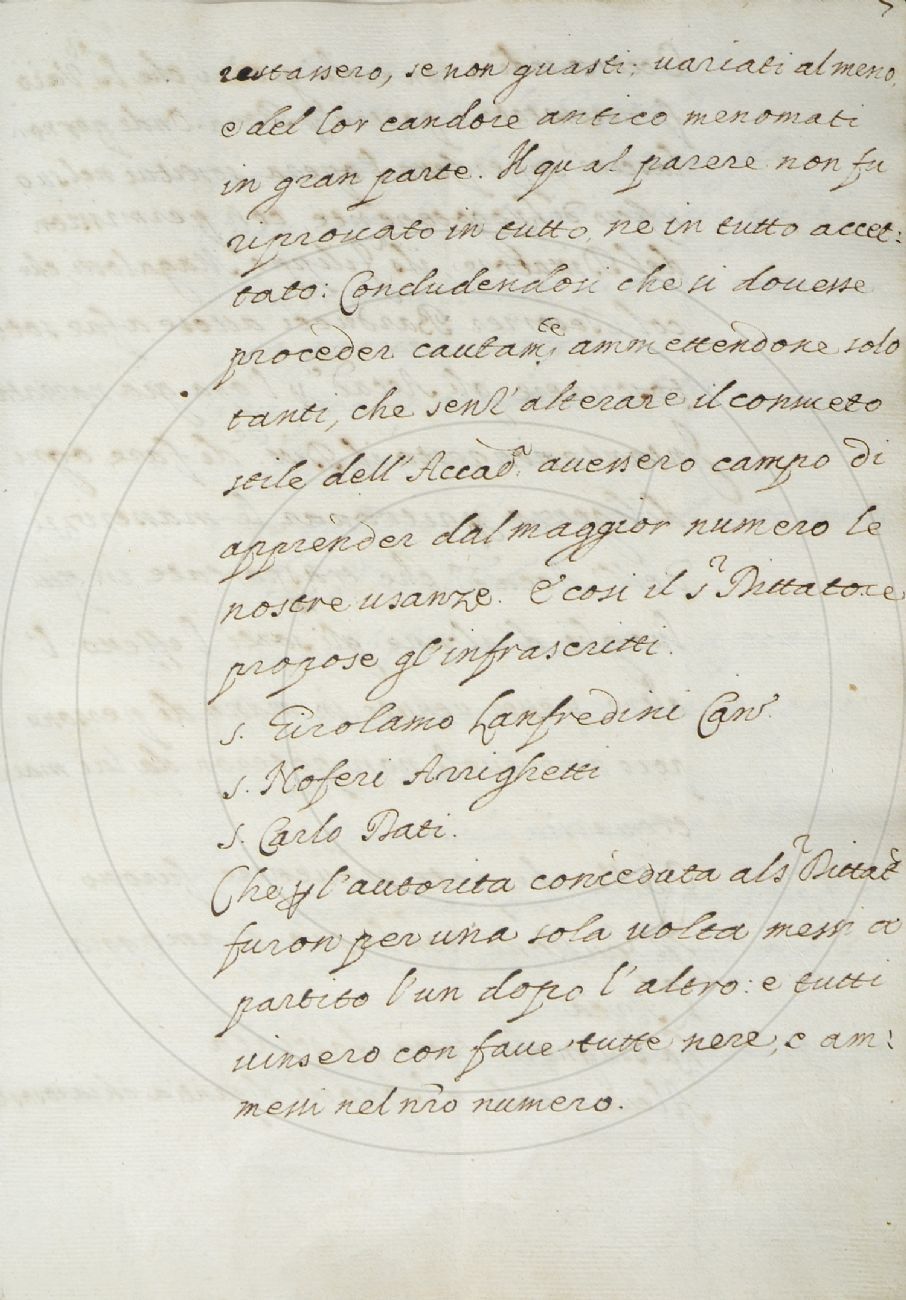 7
restassero, se non guasti, variati al meno,
e del lor candore antico menomati
in gran parte. Il qual parere non fu
riprovato in tutto, ne in tutto accet:
tato: Concludendosi che si dovesse
proceder cautam.te ammettendone solo
tanti, che senz'alterare il consueto
stile dell'Accad.a avessero campo di
apprender dal maggior numero le
nostre usanze. E cosi il s.r Dittatore
propose gl'infrascritti.
s. Girolamo Lanfredini Can.co
s. Noferi Arrighetti
s. Carlo Dati.
Che p l'autorita conceduta al s.r Dittat.e
furon per una sola volta messi a
partito l'un dopo l'altro: e tutti
vinsero con fave tutte nere, e am:
messi nel nro numero.